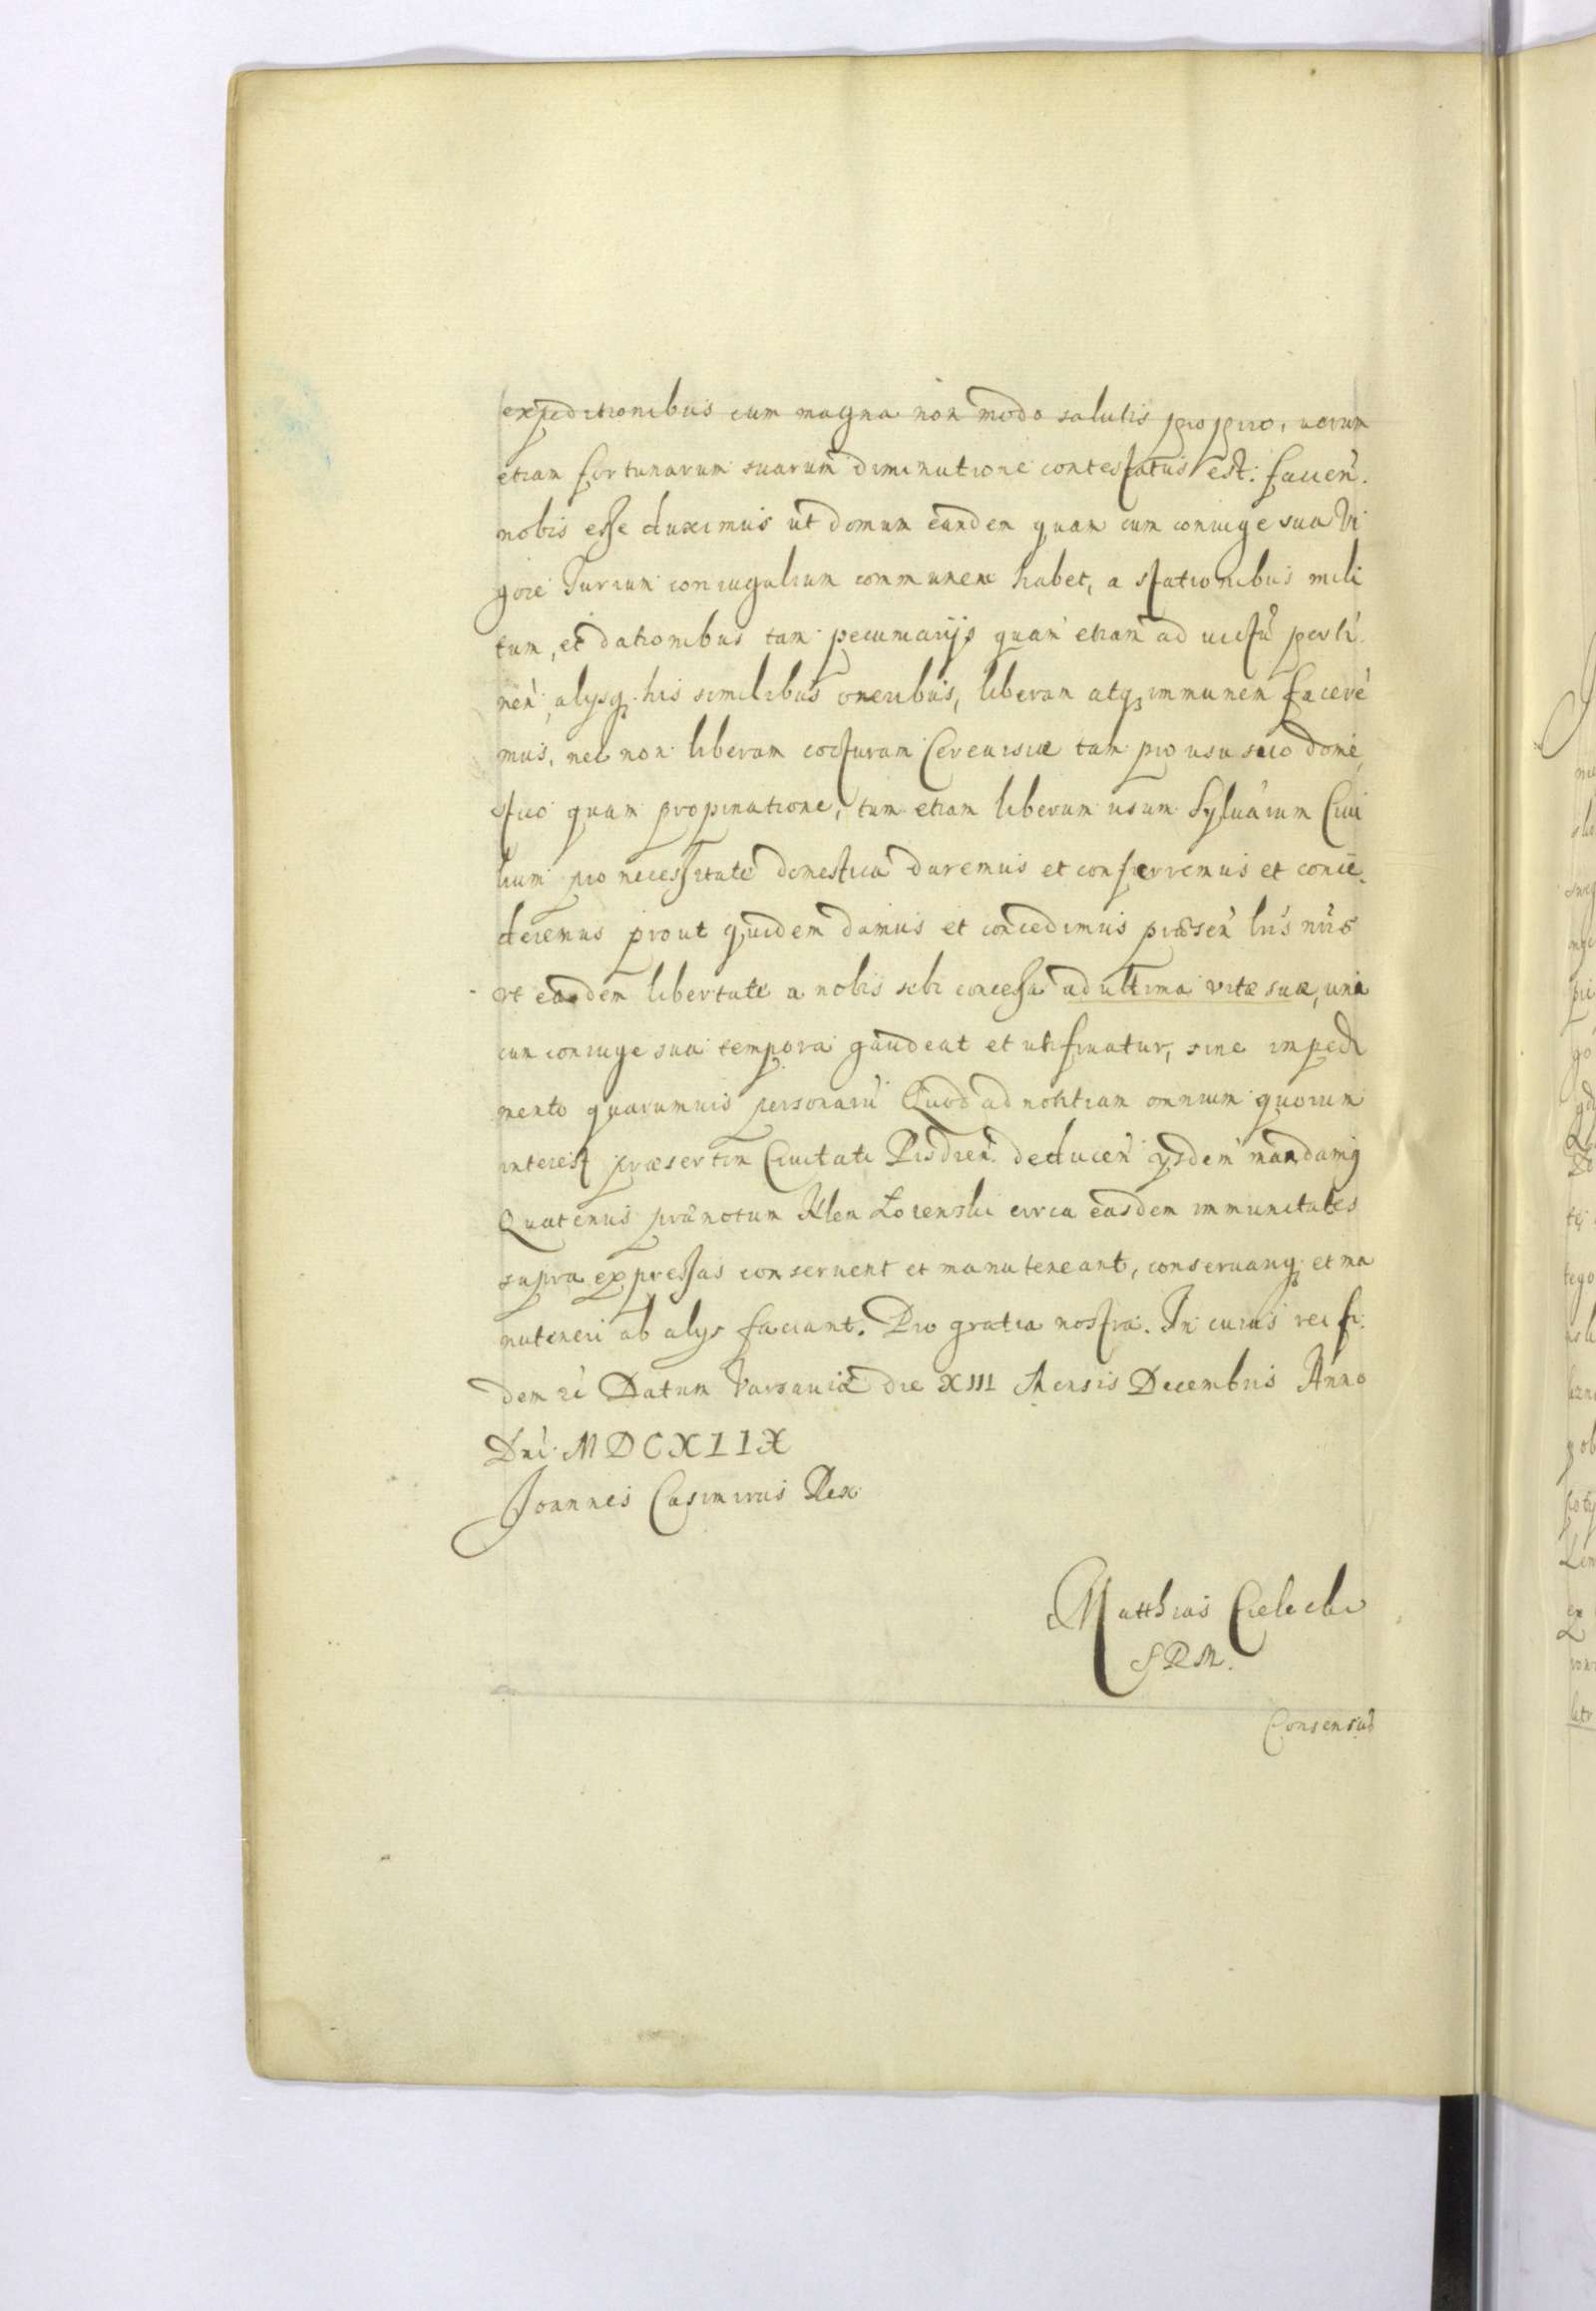 expeditionibus cum magna non modo salutis propriæ, verum
etiam fortunarum suarum diminutione contestatus est: faciēn.
nobis esse duximus ut domum eandem quam cum coniuge sua Vi
gore Iurium coniugalium communem habet, a stationibus mili
tum, et dationibus tam pecuniarijs quam etiam ad victū perti
nen, alijsq his similibus oneribus, liberam atq immunem facere
mus, nec non liberam cocturam Cerevisiæ tam pro usu suo dome
stico quam propinatione, tum etiam liberum usum Syluarum Ciui
lium pro necessitate domestica daremus et conferremus et conce
deremus prout quidem damus et concedimus præsen lris nris
vt eadem libertate a nobis sibi concessa ad ultima vitæ suæ, una
cum coniuge sua tempora gaudeat et utifruatur, sine impedi
mento quarumuis personarū Quod ad notitiam omnium quorum
interest præsertim Ciuitati Pisdren. deducen ijsdem mandamq
Quatenus prænotum Klen Lorenski circa easdem immunitates
supra expressas conseruent et manuteneant, conseruariq et ma
nuteneri ab alijs faciant. Pro gratia nostra. In cuius rei fi
dem Datum Varsauiæ die XIII Mensis Decembris Anno
Dni MDCXLIX
Joannes Casimirus Rex
Matthias Cielecki
SRM.
Consensus